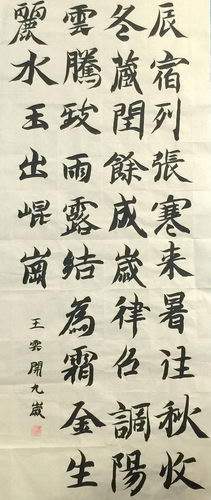 辰宿列張寒来暑往秋收
冬藏閏餘成歲律召調陽
雲騰致雨露結為霜金生
麗水玉出崐崗
王雲開九歲